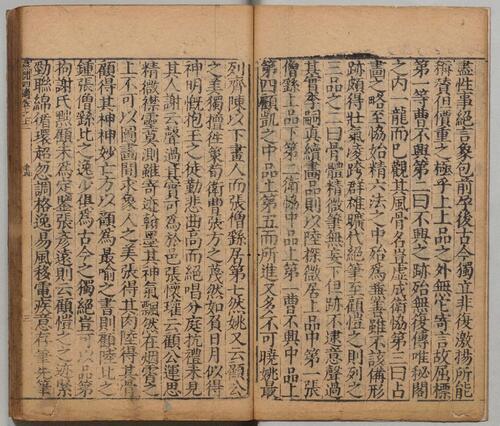 盡性事絕言象包前孕後古今獨立非復激揚所能
稱贊但價重之極乎上上品之外無他寄言故屈標
第一等曹不興第二曰不興之跡殆無復傳唯秘閣
之内一龍而巳觀其風骨名豈虚成衛協第三曰占
畫之略至協始精六法之中殆為兼善雖不該備形
跡頗得壯氣凌跨群雄曠代絕筆至顧愷之則列之
三品之二曰骨體精微筆無妄下但跡不逮意聲過
其實李嗣真續畫品則以陸探微居上品中第一張
僧繇上品下第一衛協中品上第一曹不興中品上
第四顧凱之中品上第五而所進又多不可曉姚最
列齊陳以下畫人而張僧繇居第七然姚又云顧公
之美獨擅徃策荀衛曹張方之蔑然如負日月似得
神明慨抱玉之徒勤悲曲高而絕唱分庭抗禮未見
其人謝云聲過其實可為於邑張懷瓘云顧公運思
精微襟靈莫測雖寄迹翰墨其神氣飄然在烟霄之
上不可以圖畫間求象人之美張得其肉陸得其骨
顧得其神神妙亡方以顧為最喻之書則顧陸比之
鍾張僧繇比之逸少俱為古今之獨絕豈可以品第
拘謝氏黜顧未為定鑒張彥遠則云顧愷之之迹緊
勁聯綿循環超忽調格逸易風移電疾意存筆先筆